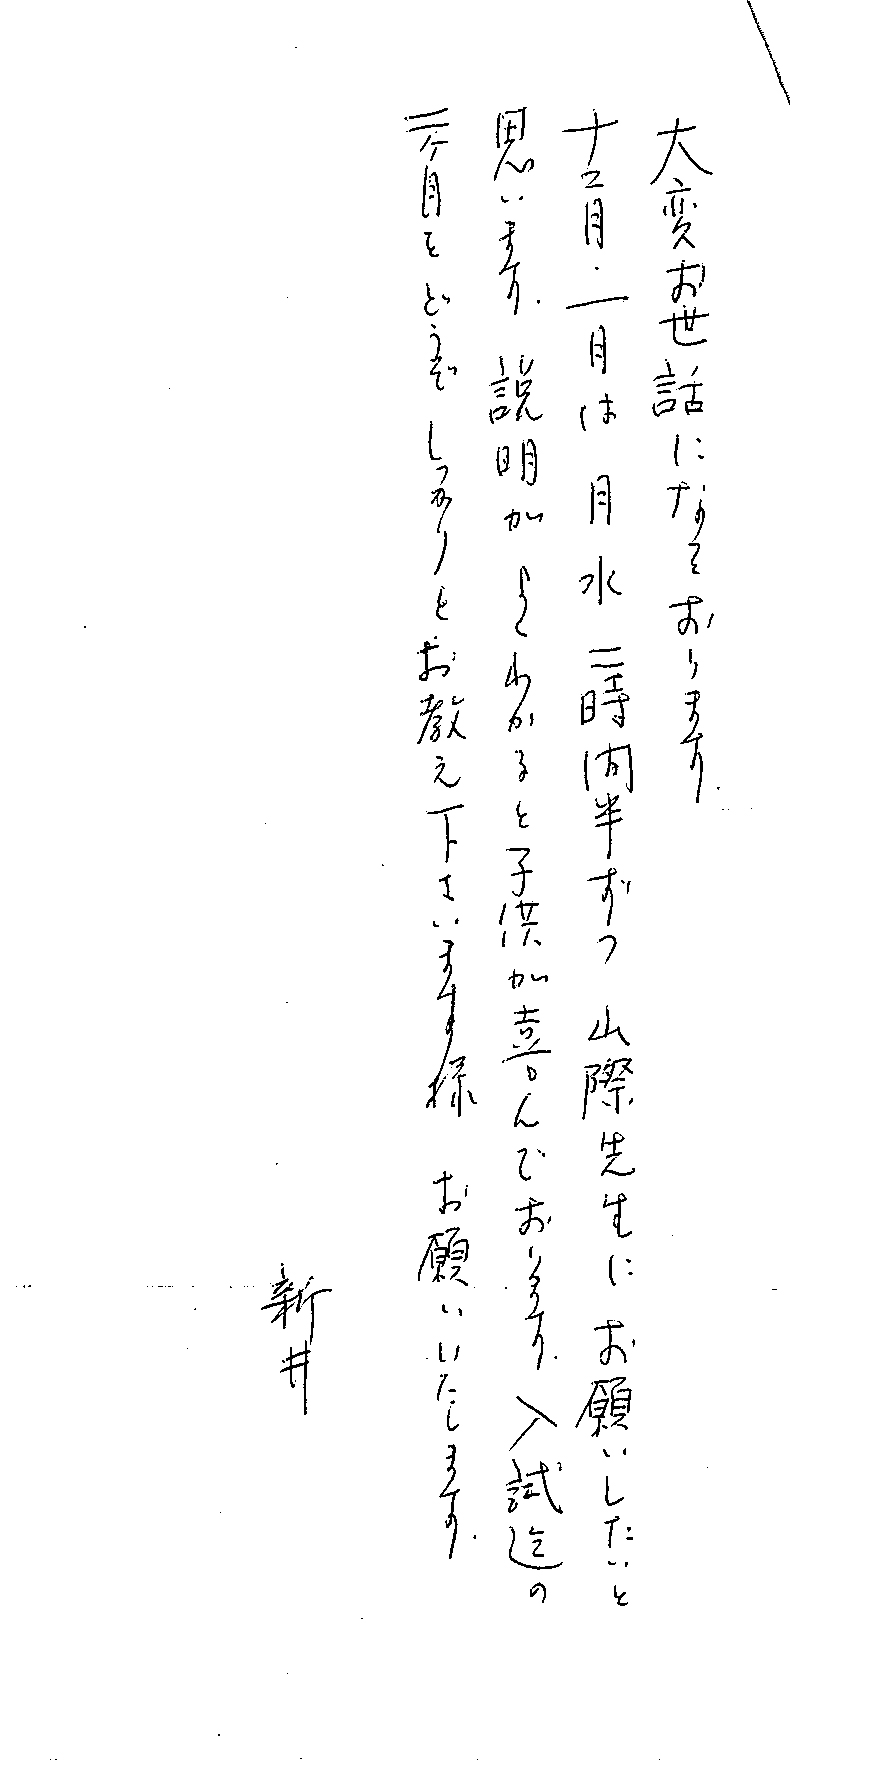 大変お世話になっております.
十二月・一月は 月 水 二時間半ずつ 山際先生に お願いしたいと
思います. 説明が よくわかると子供が喜んでおります. 入試迄の
二ヶ月をどうぞしっかりとお教え下さいます様 お願いいたします.
新井